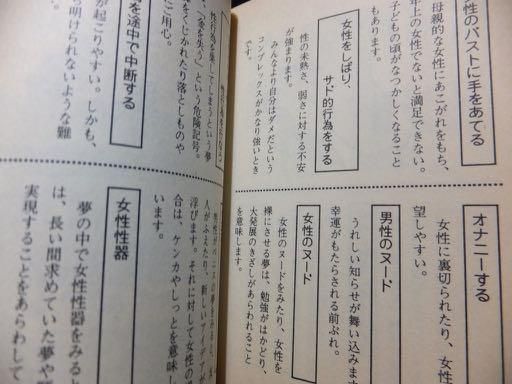 性のバストに手をあてる
母親的な女性にあこがれをもち、
年上の女性でないと満足できない。
子どもの頃がなつかしくなること
もあります。
女性をしばり、
サド的行為をする
性の未熟さ、弱さに対する不安
が強まります。
みんなより自分はダメだという
コンプレックスがかなり強いとき
です。
オナニーする
女性に裏切られたり、女性
望しやすい。
男性のヌード
うれしい知らせが舞い込みます
幸運がもたらされる前ぶれ。
女性のヌード
女性のヌードをみたり、女性を
裸にさせる夢は、勉強がはかどり、
大発展のきざしがあらわれること
を意味します。
してしまうという夢
「金を失う」という危険記号。
をくじかれたり落としものや
ご用心。
を途中で中断する
が起こりやすい。しかも、
ち明けられないような難
人がふえたり、新しいアイデアが
浮びます。それに対して女性の場
合は、ケンカやしっとを意味し
います。
女性性器
夢の中で女性性器をみると
は、長い間求めていた夢や
実現することをあらわして